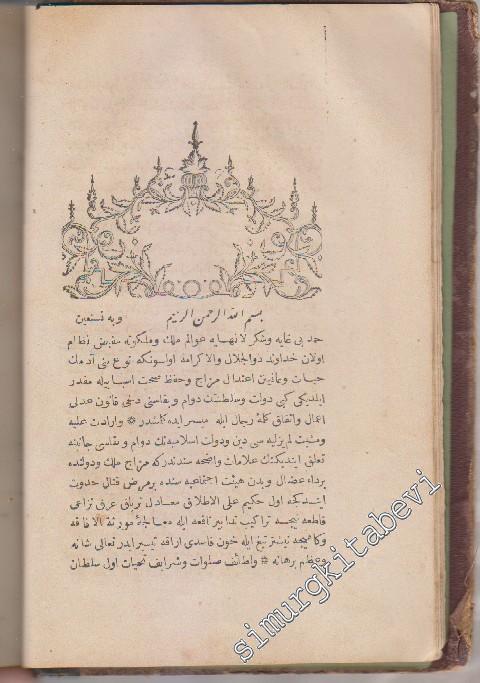 بسم الله الرحمن الرحيم وبه نستعين
حمد بى غايه وشكر لا نهايه عوالم ملك وملكوته مفيض نظام
اولان خداوند ذوالجلال والاكرامه اولسونكه نوع بنى آدمك
حيات وممانين اعتدال مزاج وحفظ صحت اسبابيله مقدر
ايلديكى كبى دولت وسلطنتك دوام وبقاسنى دخى قانون عدلى
اعمال واتفاق كلمهٔ رجال ايله ميسر ايده كلمشدر * وارادت عليه
ومشيت لم يزليه سى دين ودولت اسلاميه‌نك دوام وبقاسى جانبنه
تعلق ايتديكنك علامات واضحه سندندركه مزاج ملك ودولتده
برداء عضال وبدن هيئت اجتماعيه سنده برمرض قتال حدوث
ايتدكجه اول حكيم على الاطلاق معادل ترياق عرق تراعى
قاطعه نتيجه تراكيب تدابير نافعه ايله معالجهٔ مورثة الافاقه
وكاهيجه نيشتر تيغ ايله خون فاسدى اراقه تيسير ايدر تعالى شانه
وعظم برهانه * ولطائف صلوات وشرايف تحيات اول سلطان
simurgkitabevi